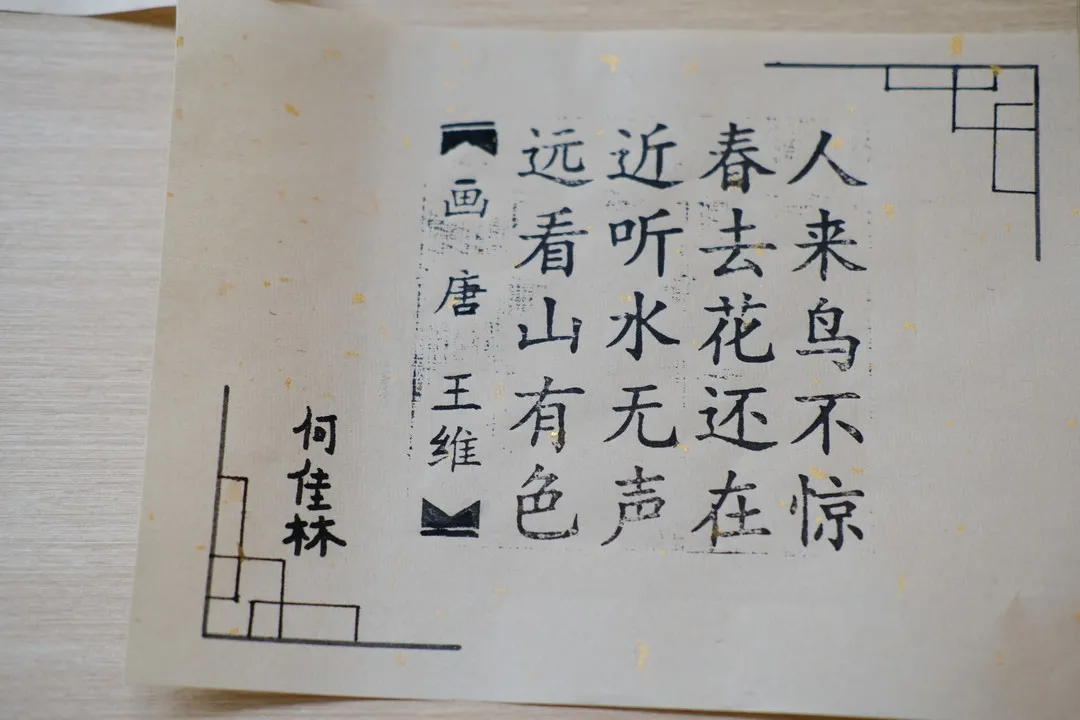 【画 唐 王维】
远看山有色
近听水无声
春去花还在
人来鸟不惊
何佳林